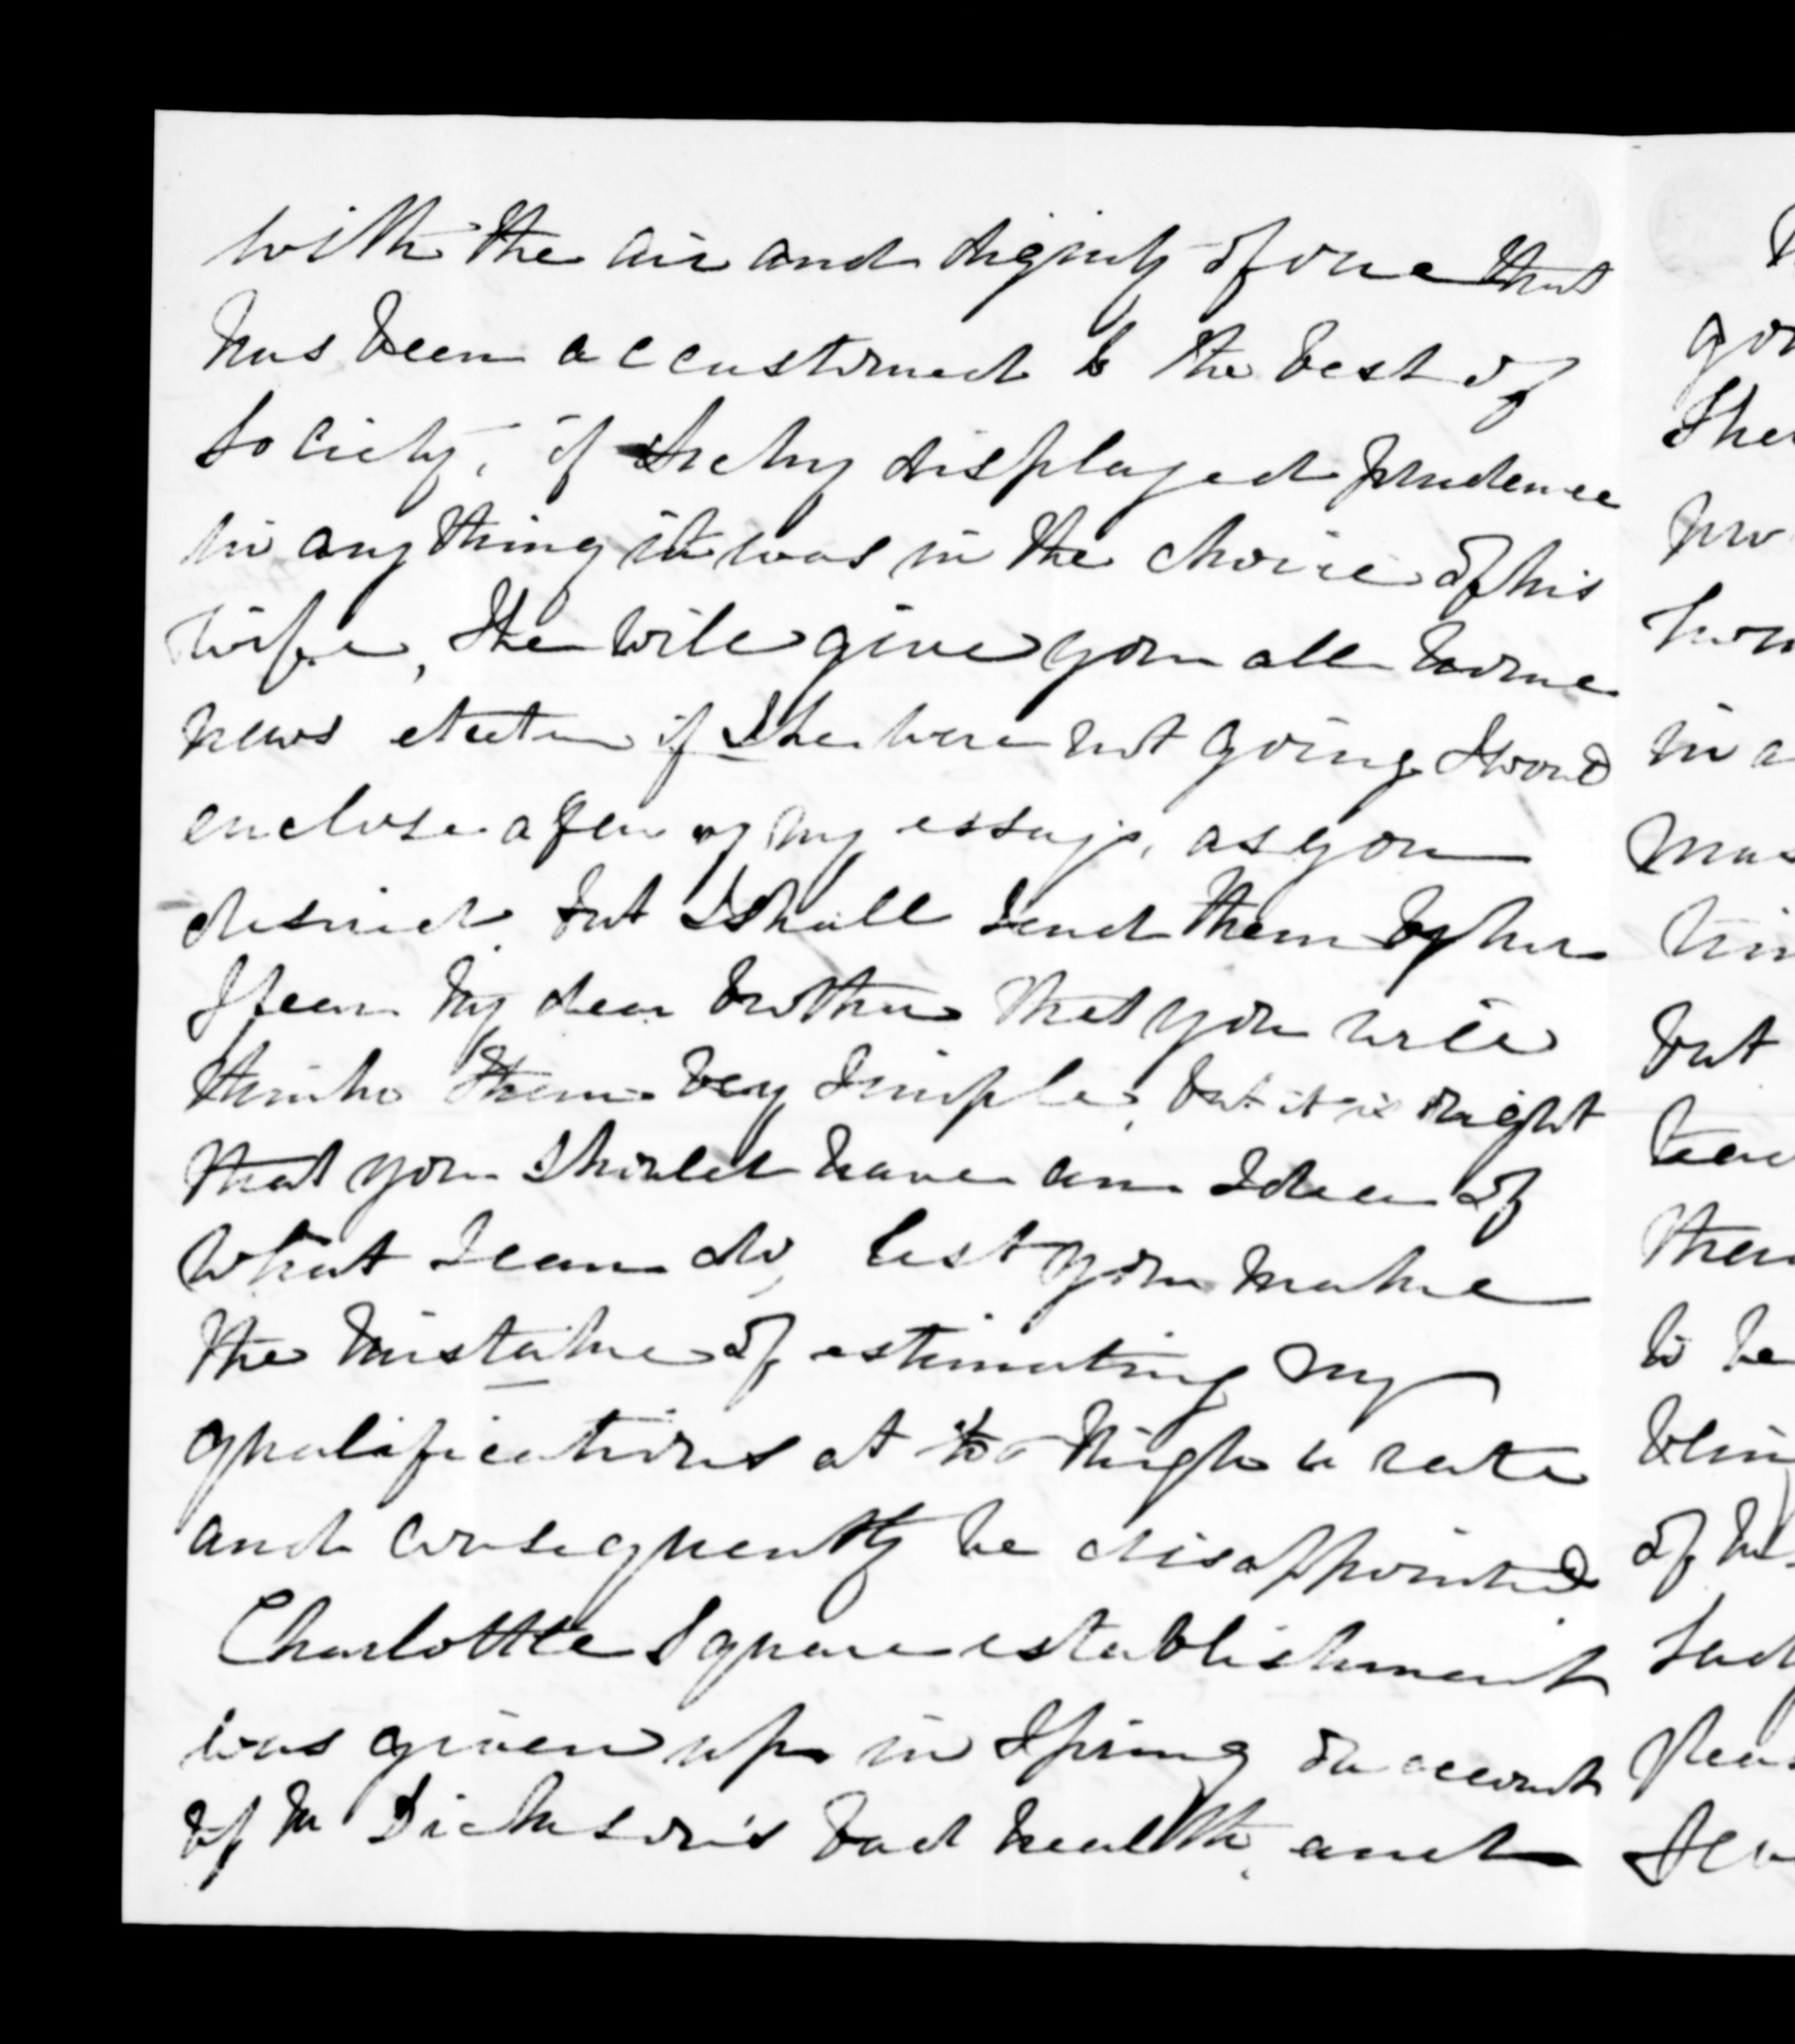 with the air and dignity of one that
has been accustomed to the best of
society, if displayed prudence
in any thing it was in the choice of his
wife, She will give you all home
news if She were not going I would
enclose a few of my essays, as you
desired but I shall send them by her
I fear my dear brother that you will
think them very simple, but it is right
that you should have an Idea of
what I can do, lest you make
the mistake of estimating my
qualifications at too high a rate
and consequently be disappointed
Charlotte Square establishment
was given up in Spring on account
of Mr Dickson's bad health, and
but